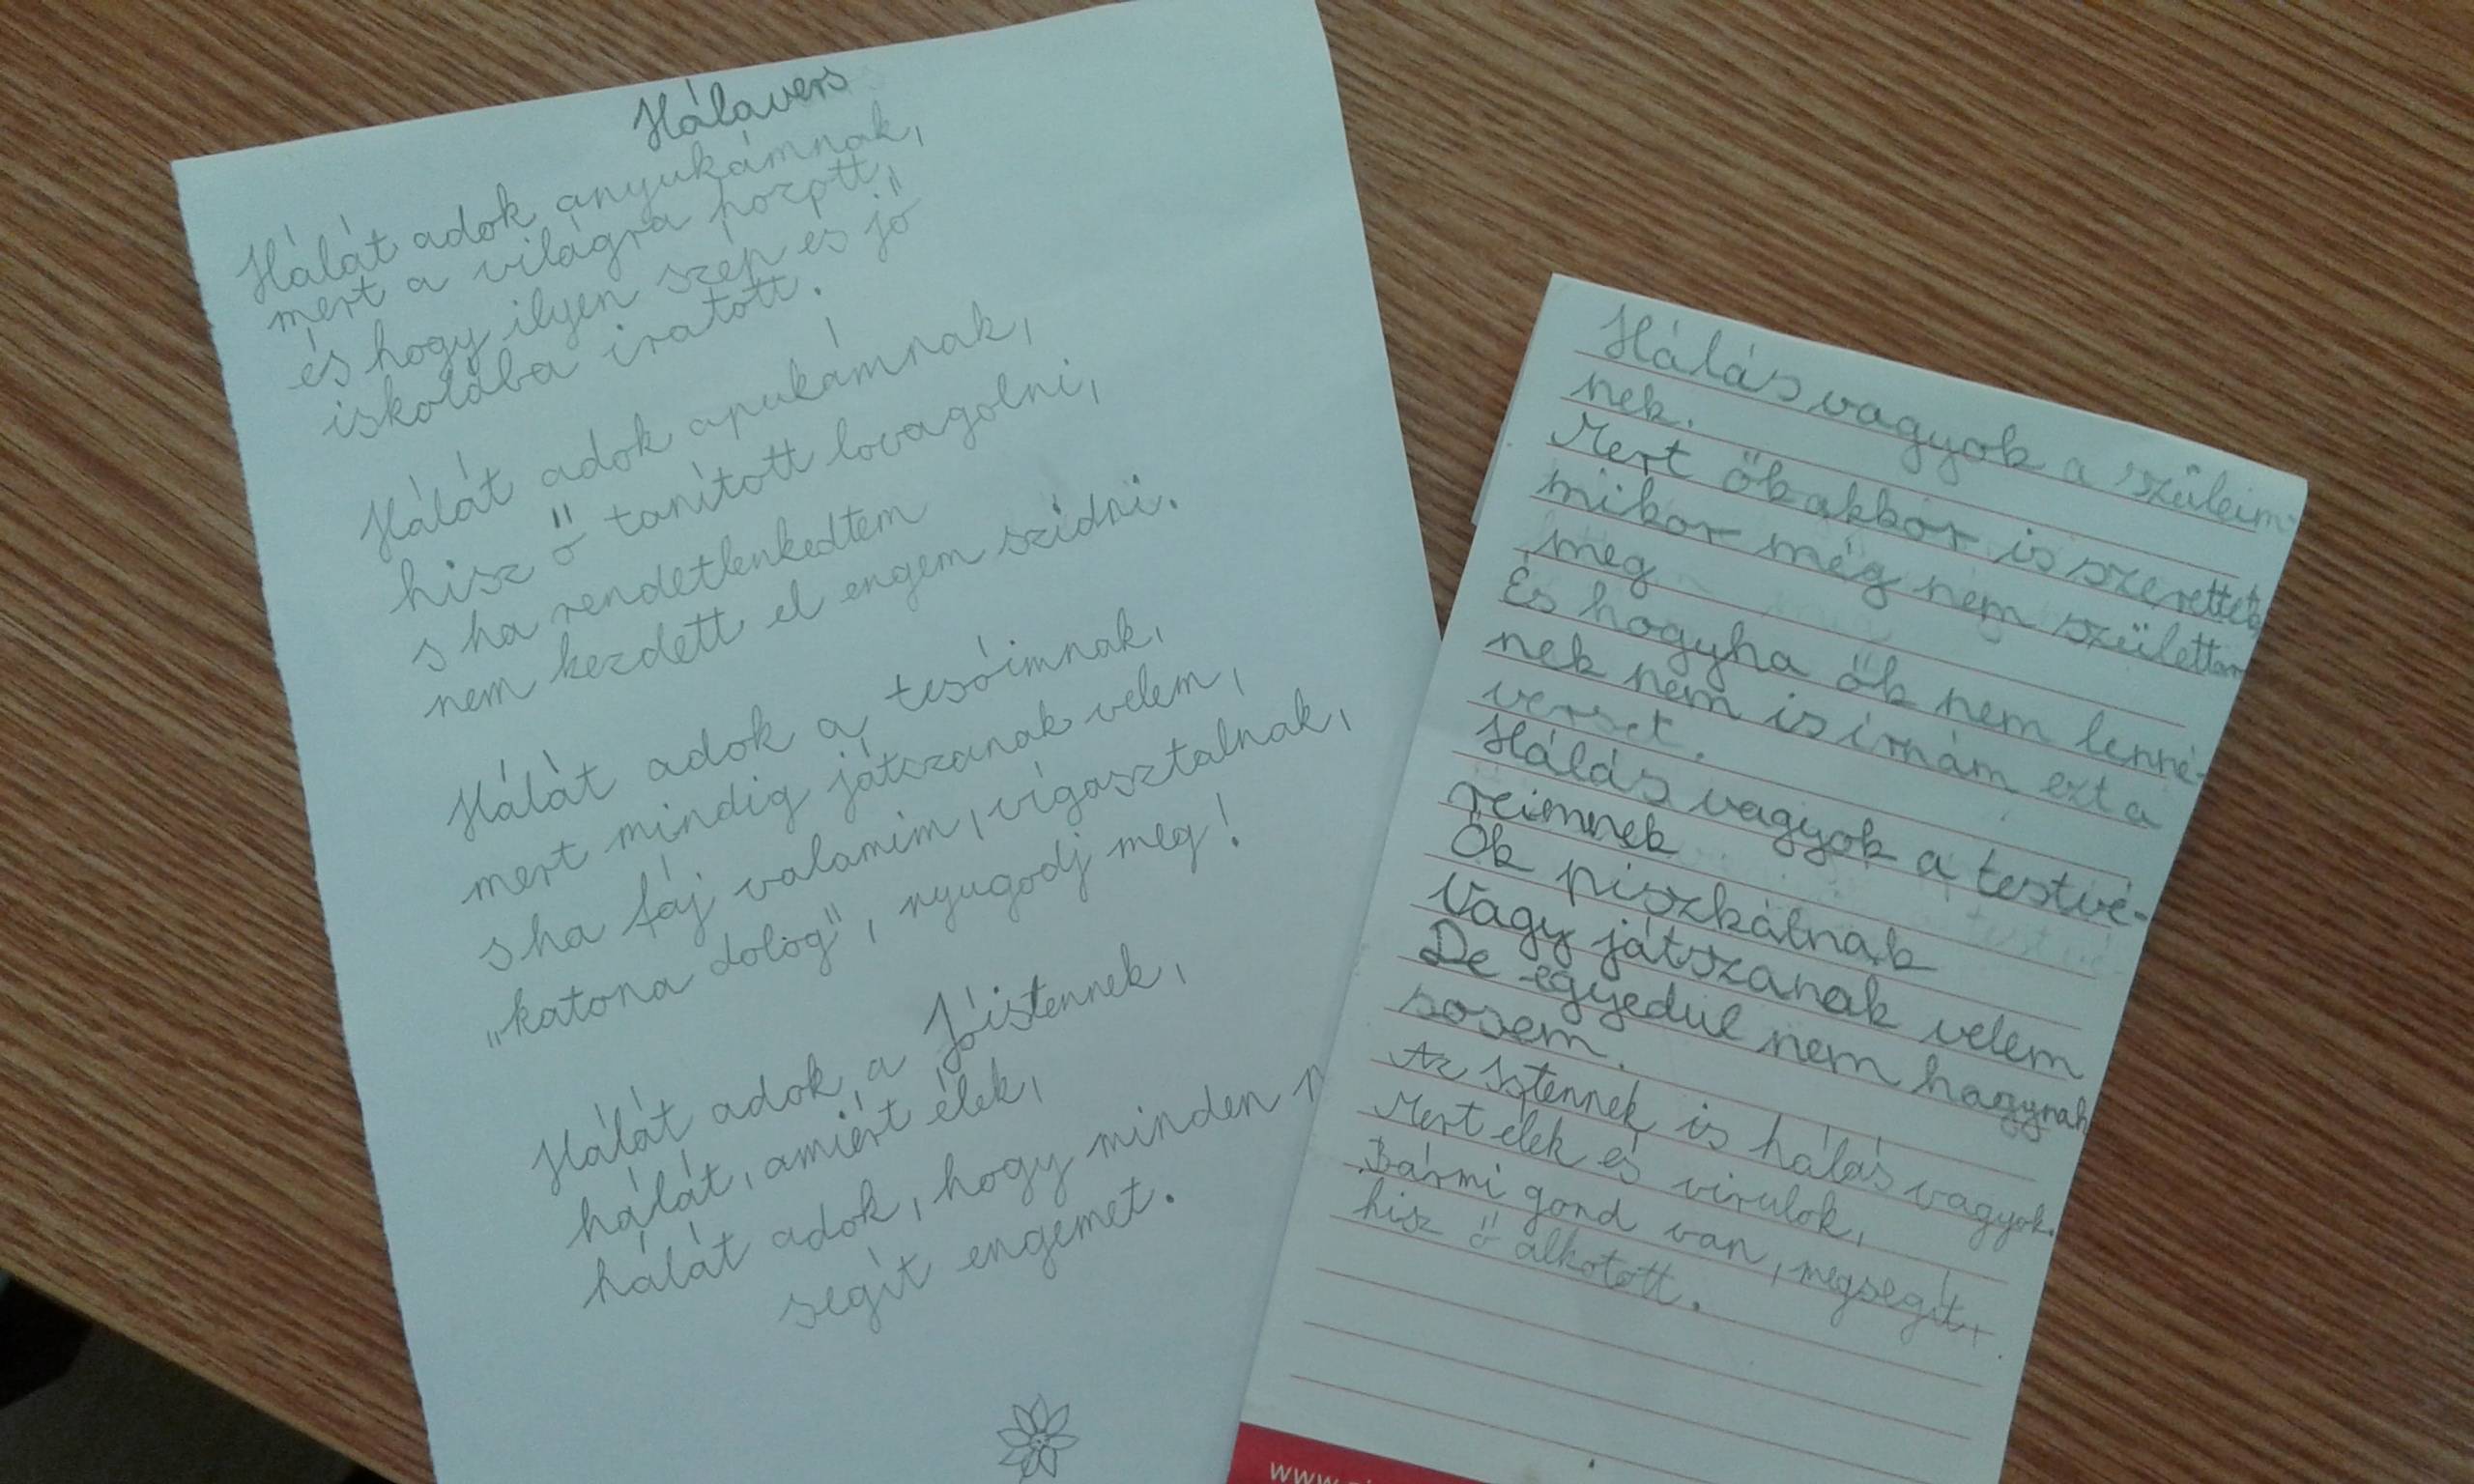 Hálavers
Hálát adok anyukámnak,
mert a világra hozott,
és hogy ilyen szép es jó
iskolába iratott.
Hálát adok apukámnak,
hisz ő tanított lovagolni,
s ha rendetlenkedtem
nem kezdett el engem szidni.
Hálát adok a tesóimnak,
mert mindig játszanak velem,
s ha fáj valamim, vígasztalnak,
„katona dolog", nyugodj meg!
Hálát adok a Jóistennek,
hálát, amiért élek,
hálát adok, hogy minden
segít engemet.
Hálás vagyok a szüleim-
nek.
Mert ők akkor is szerettek
mikor még nem születtem
meg
És hogyha ők nem lenné-
nek nem is írnám ezt a
verset.
Hálás vagyok a testvé-
reimnek
Ők piszkálnak
Vagy játszanak velem
De egyedül nem hagynak
sosem.
Az Istennek is hálás vagyok.
Mert élek és virulok,
Bármi gond van, megsegít,
hisz ő alkotott.